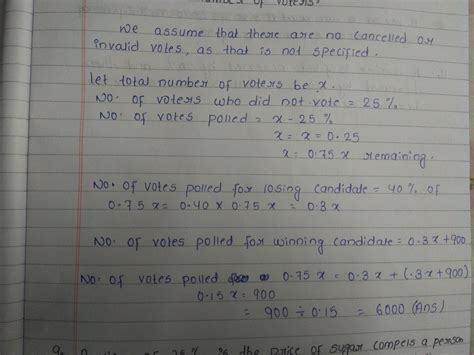 number of voters?
We assume that there are no cancelled or
invalid votes, as that is not specified.
let total number of voters be x.
No. of voters who did not vote = 25 %
No. of votes polled = x - 25 %
x = x = 0.25
x = 0.75 x remaining.
No. of votes polled for losing candidate = 40 % of
0.75 x = 0.40 x 0.75 x = 0.3 x
No. of votes polled for winning candidate = 0.3 x + 900
No. of votes polled 0.75 x = 0.3 x + (.3 x + 900)
0.15 x = 900
= 900 ÷ 0.15 = 6000 (Ans)
is the price of sugar compels a person